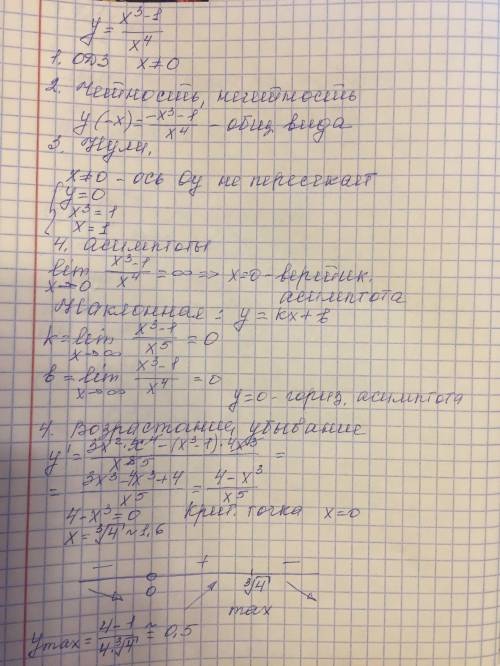 y = (x³-1)/x⁴
1. ОДЗ x≠0
2. Четность, нечетность
y(-x) = (-x³-1)/x⁴ - общ. вида
3. Нули.
x≠0 - ось Oy не пересекает
{ y=0
x³=1
x=1
4. асимптоты
lim x→0 (x³-1)/x⁴ = ∞ => x=0 - вертик. асимптота
Наклонная: y = kx+b
k = lim x→∞ (x³-1)/x⁵ = 0
b = lim x→∞ (x³-1)/x⁴ = 0
y=0 - гориз. асимптота
4. Возрастание, убывание
y' = =
= (3x³-4x³+4)/x⁵ = (4-x³)/x⁵
4-x³=0 Крит. точка x=0
x = ∛4 ≈ 1,6
− + −
0 ∛4
max
y max = (4-1)/(4·∛4) ≈ 0,5